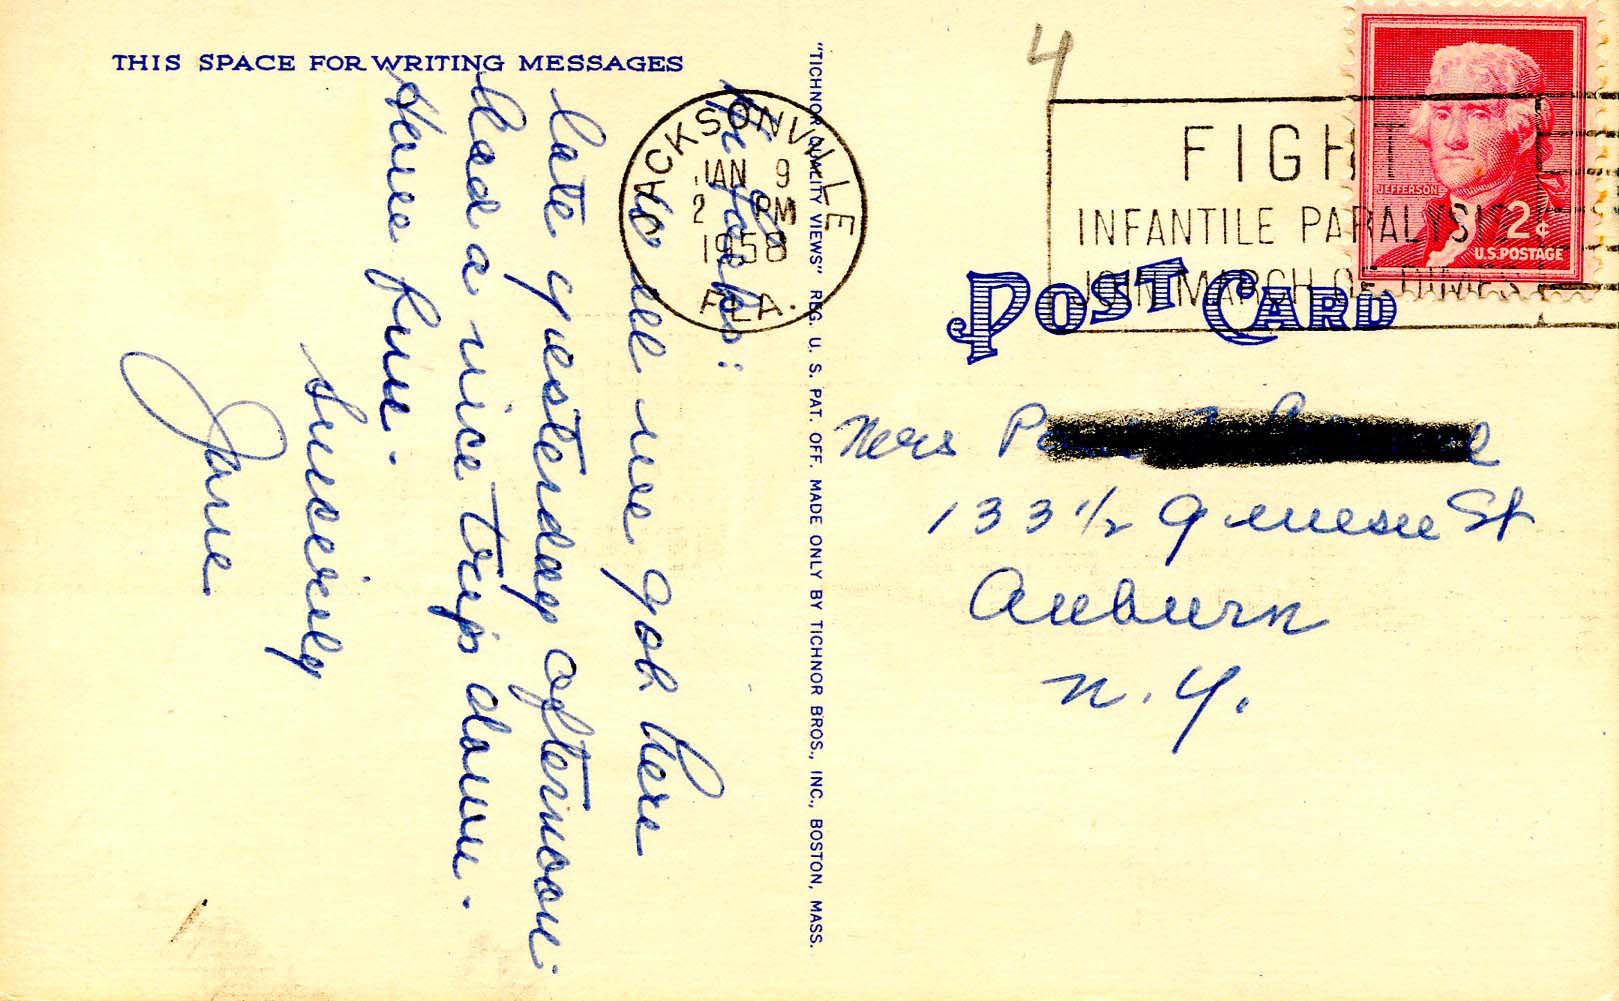 THIS SPACE FOR WRITING MESSAGES
Hi folks:
As
to see we got here
late yesterday afternoon
Had a nice trip down.
Here fine.
Sincerely
Jane
"TICHNOR QUALITY VIEWS" REG. U. S. PAT. OFF. MADE ONLY BY TICHNOR BROS., INC., BOSTON, MASS.
JACKSONVILLE
JAN 9
2 PM
1958
FLA.
4
FIGHT
INFANTILE PARALYSIS
JOIN MARCH OF DIMES
JEFFERSON
2¢
U.S. POSTAGE
POST CARD
Mrs
133 1/2 Genesee St
Auburn
N.Y.